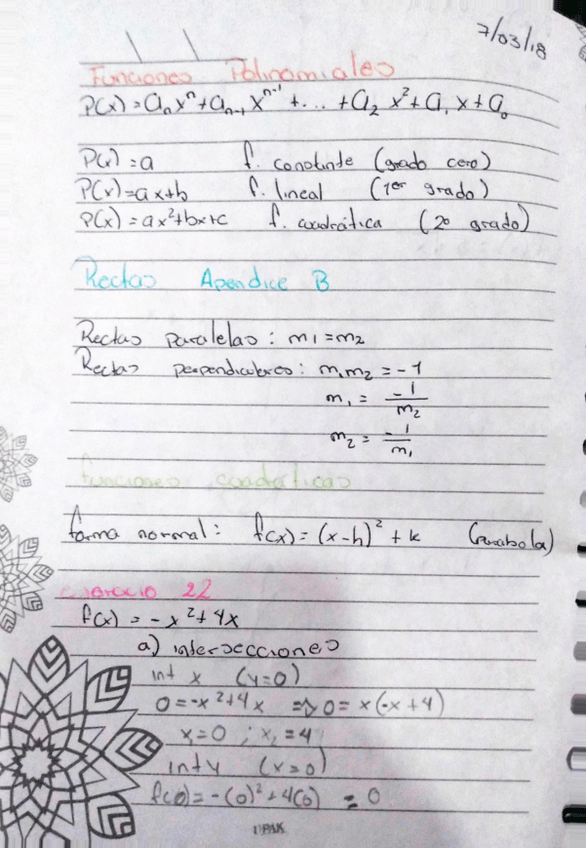 7/03/18
Funciones Polinomiales
P(x) = aₙxⁿ + aₙ₋₁ xⁿ⁻¹ + ... + a₂ x² + a₁ x + a₀
P(x) = a f. constante (grado cero)
P(x) = ax+b f. lineal (1er grado)
P(x) = ax²+bx+c f. cuadrática (2o grado)
Rectas Apendice B
Rectas paralelas: m₁ = m₂
Rectas perpendiculares: m₁m₂ = -1
m₁ = -1/m₂
m₂ = -1/m₁
funciones cuadráticas
forma normal: f(x) = (x-h)² + k (parabola)
ejercicio 22
f(x) = -x² + 4x
a) intersecciones
int x (y=0)
0 = -x² + 4x => 0 = x(-x+4)
x₁=0 ; x₂=4
int y (x=0)
f(0) = -(0)² + 4(0) = 0